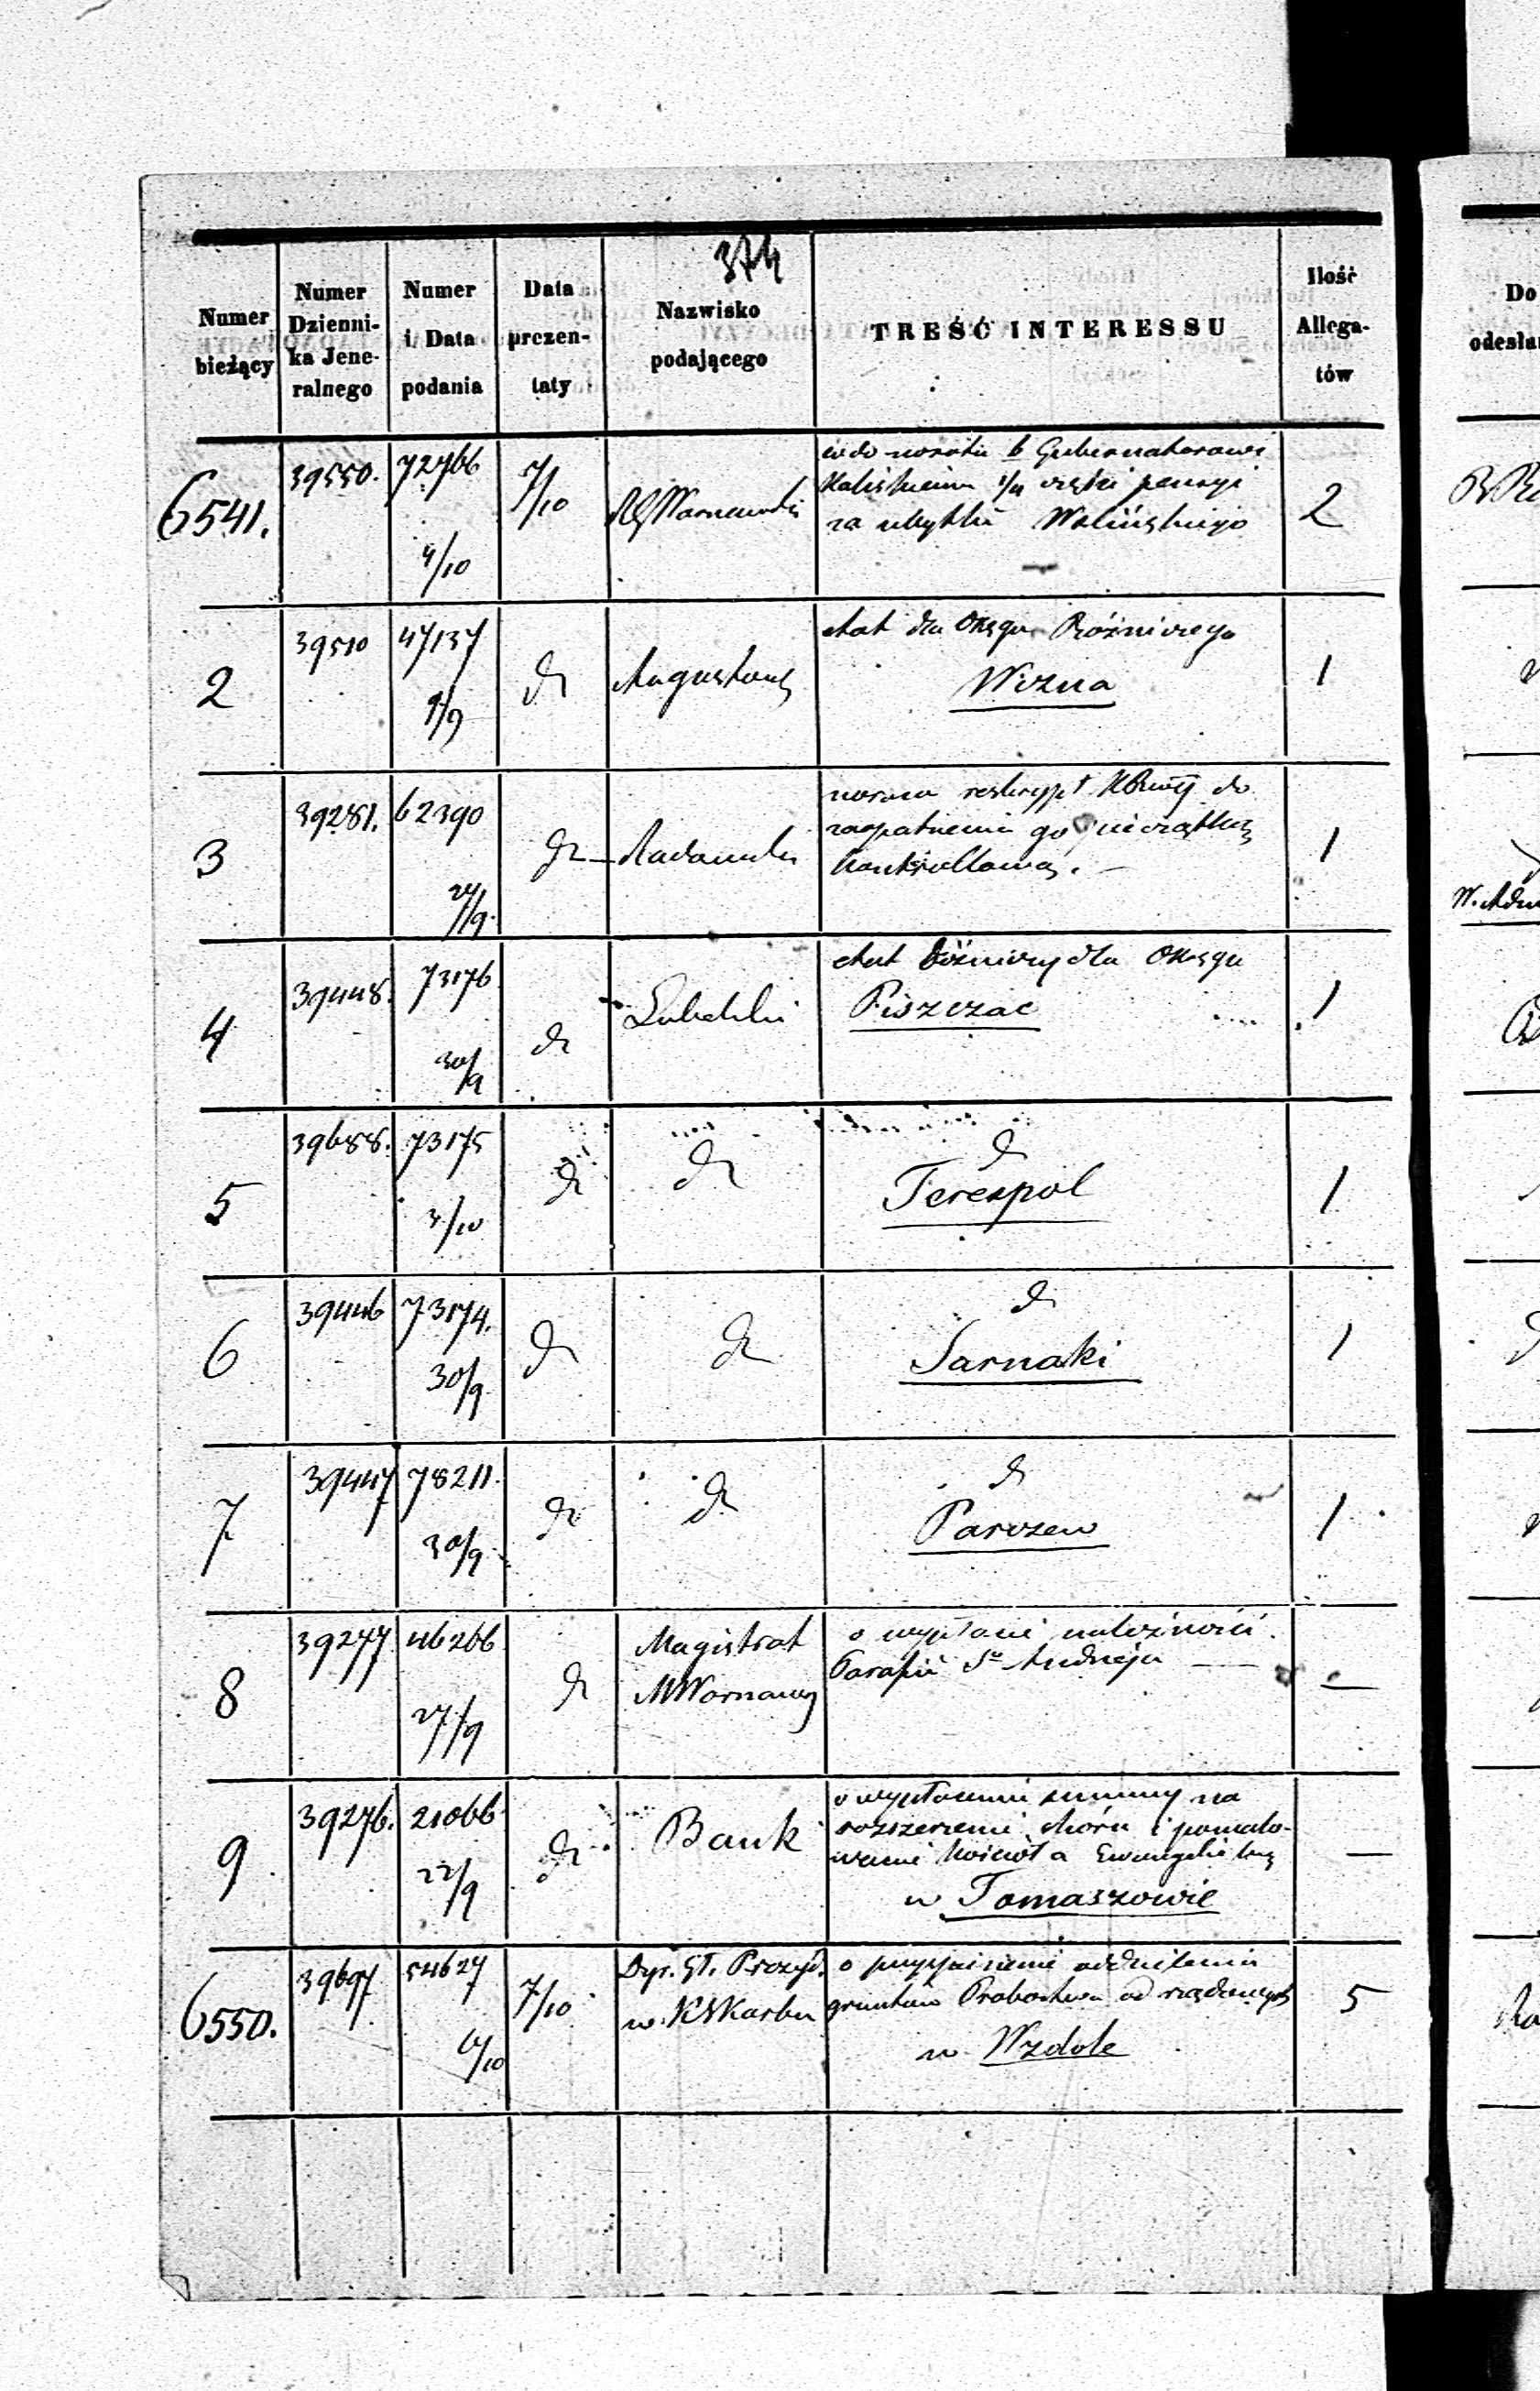 374
Numer bieżący
Numer Dzienni-
ka Jene-
ralnego
Numer
i Data
podania
Data
prezen-
taty
Nazwisko
podającego
TREŚĆ INTERESSU
Ilość
Allega-
tów
Do
6541.
39550.
72766
4/10
7/10
co do zwrotu b Gubernatorowi
Kaliskiemu 1/4 części pensyi
za ubytku Wolińskiego
2
2
39510
47137
9/9
do
Augustows
etat dla Okręgu Bóżniczego
Wizna
1
3
39281.
62390
27/9
do
Radomski
zwraca reskrypt do
zaopatrzenia go pieczątką
kontrollową.
1
4
39448.
73176
30/9
do
Lubelski
etat bóżniczy dla Okręgu
Piszczac
1
5
39688.
73175
3/10
do
do
do
Terespol
1
6
39446
73174.
30/9
do
do
do
Sarnaki
1
7
39447
78211.
30/9
do
do
do
Parczew
1
8
39277
46266
27/9
do
Magistrat
MWarszawy
o należności
Parafii Sgo Andrzeja —
—
9
39276.
21066
22/9
do
Bank
o wypłacenie summy na
rozszerzenie chóru i pomalo-
wanie kościoła Ewangelickieg
w Tomaszowie
—
6550.
39697
54627
6/10
7/10
Dyr. Gł. Prezyd.
w KSkarbu
o oddzielenia
gruntów Probostwa od rządowych
w Wzdole
5